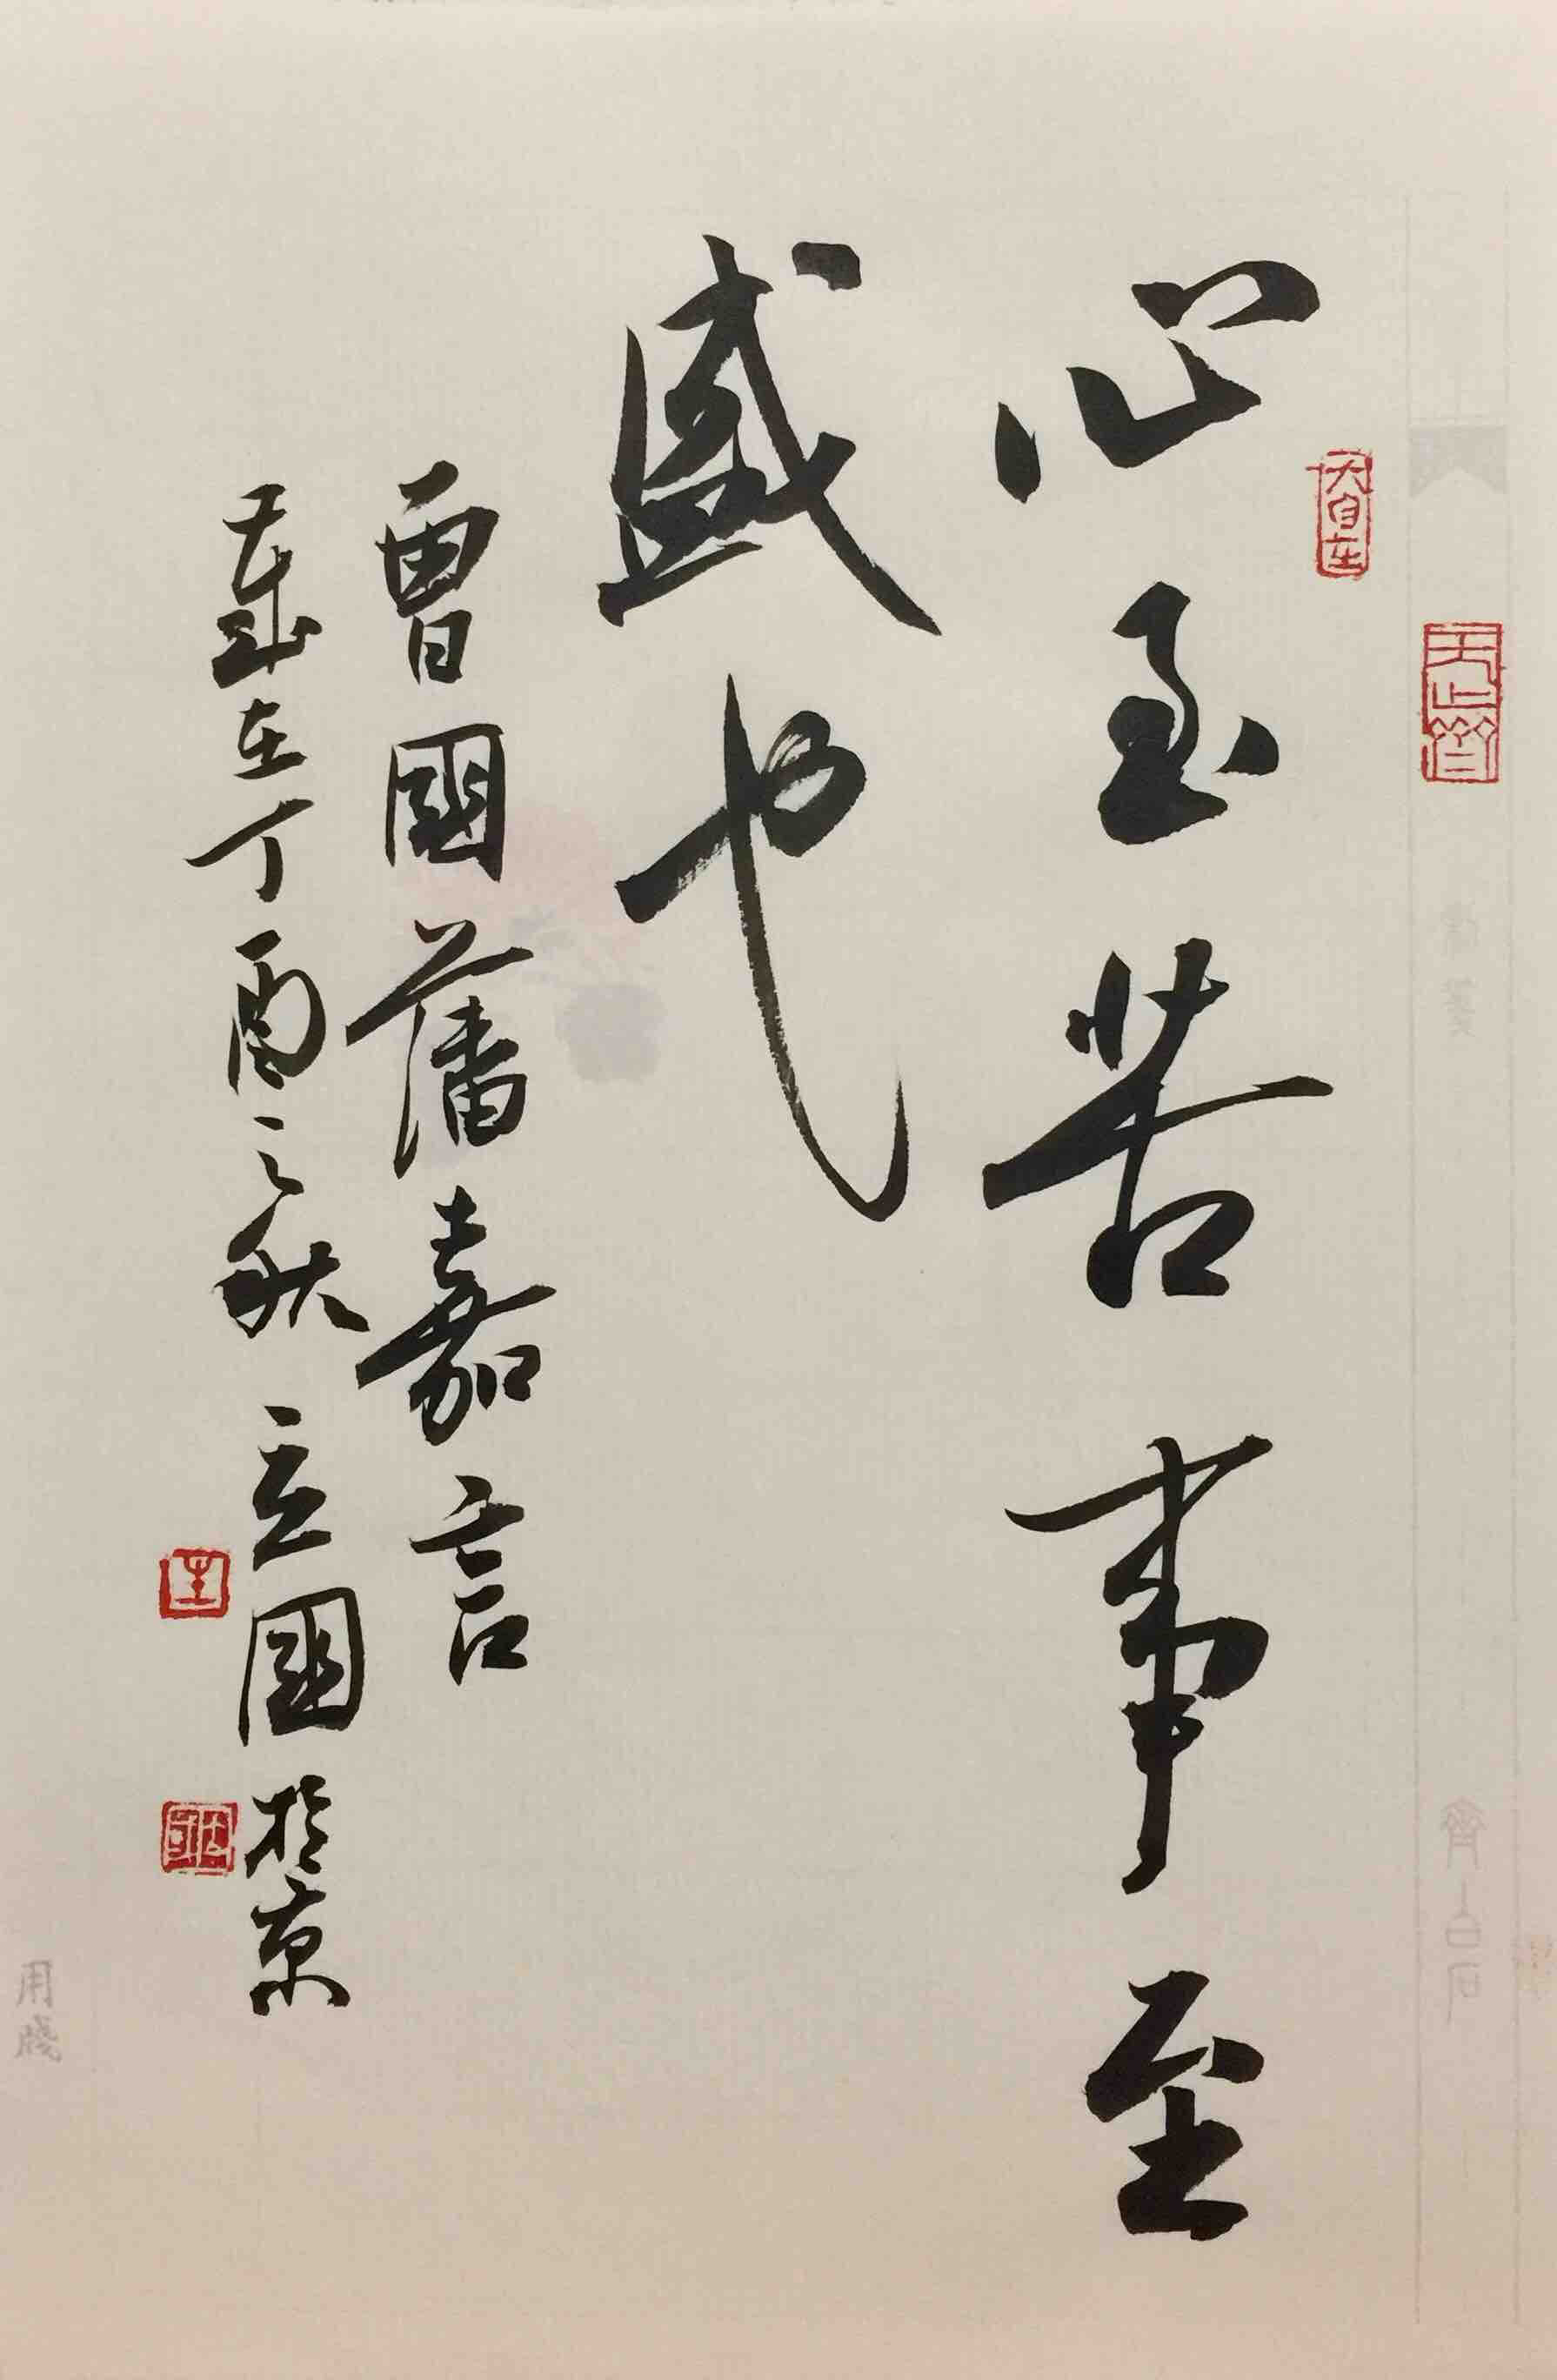 心至苦事至
盛也
曾國藩嘉言
歲在丁酉之秋立國於京
大自在
用牋